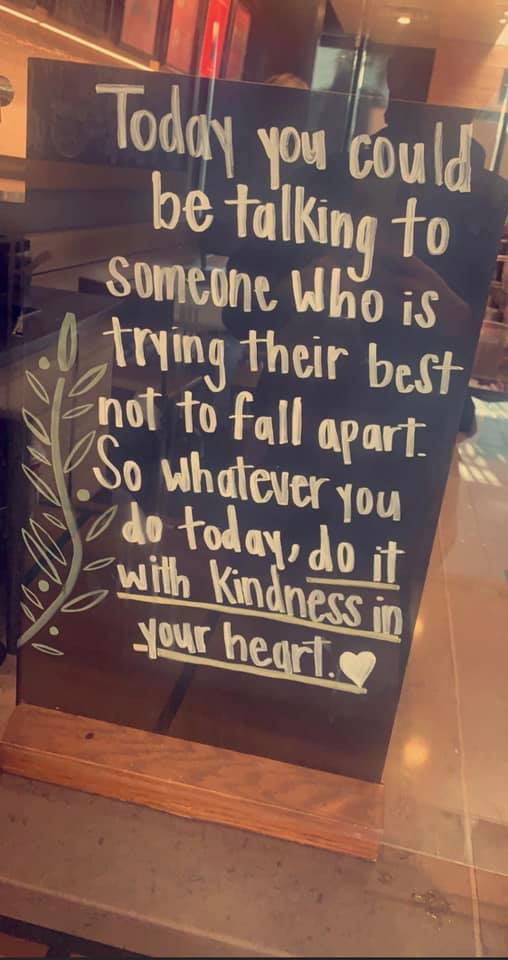 Today you could
be talking to
someone who is
trying their best
not to fall apart.
So whatever you
do today, do it
with kindness in
your heart.